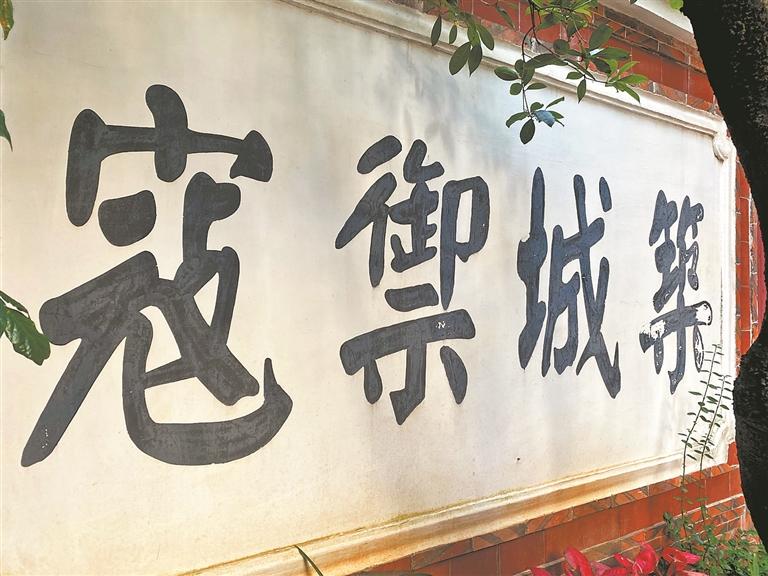 築城禦寇